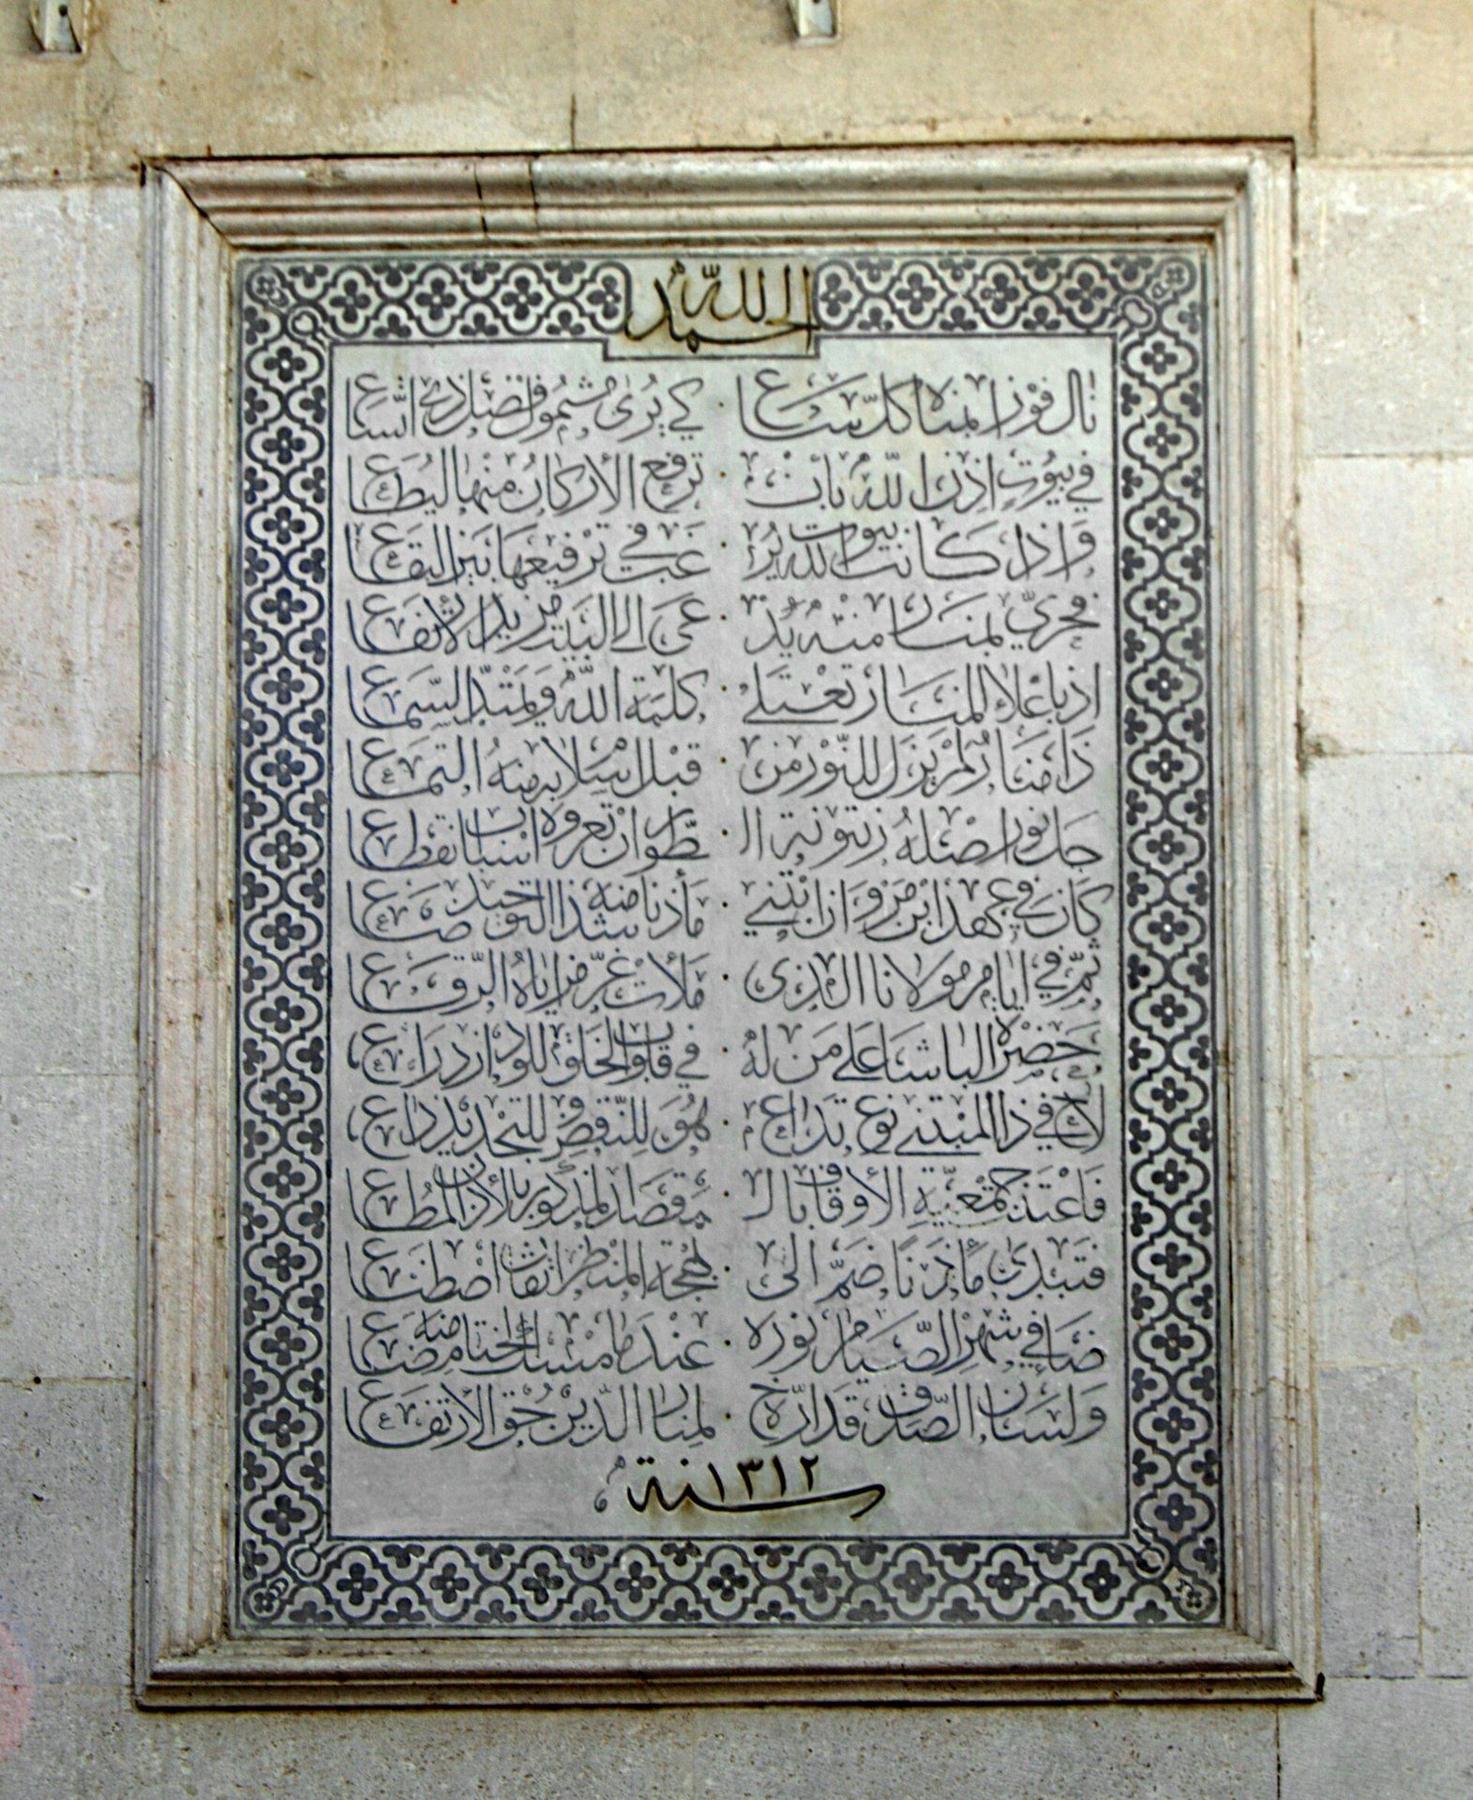 الحمد لله
نال فوزا بمناه كل ساع · كي يرى مشمول فضل ذي اتساع
في بيوت اذن الله بان · ترفع الاركان منها
واذا كانت بيوت الله ير · غب في ترفيعها بين البقاع
فحري بمنار منه يد · عى الى البيت من يدا الانتفاع
اذ باعلاء المنار تعتلي · كلمة الله ويمتد السماع
ذا منار لم يزل للنور من · قبل اسلام منه التماع
جل نور اصله زيتونة ال · طور ان تعروه اسباب انقطاع
كان في عهد ابن مروان ابتني · مأذنا منه شذا التوحيد ضاع
ثم في ايام مولانا الذي · ملأت غر مزاياه الرقاع
حضرة الباشا علي من له · في قلوب الخلق للود ازدراع
لاح في ذا المبتنى نوع تداع · هو للنقض للتجديد داع
فاعتنت جمعية الاوقاف بال · مقصد المذكور بالاذن المطاع
فتبدى مأذنا ضم الى · بهجة المنظر اتقان اصطناع
ضاء في شهر الصيام نوره · عندما مسك الختام منه ضاع
ولسان الصدق قد ارخ · لمنار الدين حق الارتفاع
سنة ١٣١٢